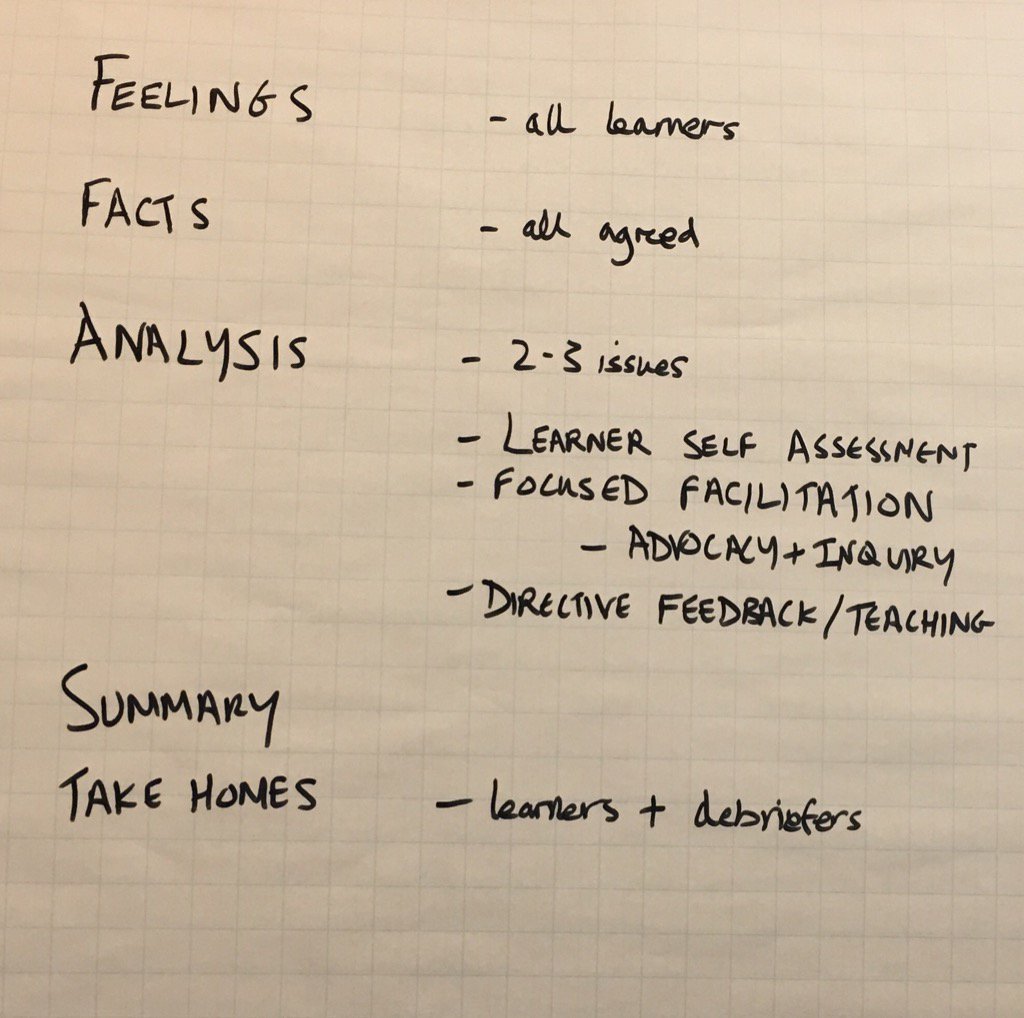 FEELINGS - all learners
FACTS - all agreed
ANALYSIS - 2-3 issues
- LEARNER SELF ASSESSMENT
- FOCUSED FACILITATION
- ADVOCACY + INQUIRY
- DIRECTIVE FEEDBACK / TEACHING
SUMMARY
TAKE HOMES - learners + debriefers